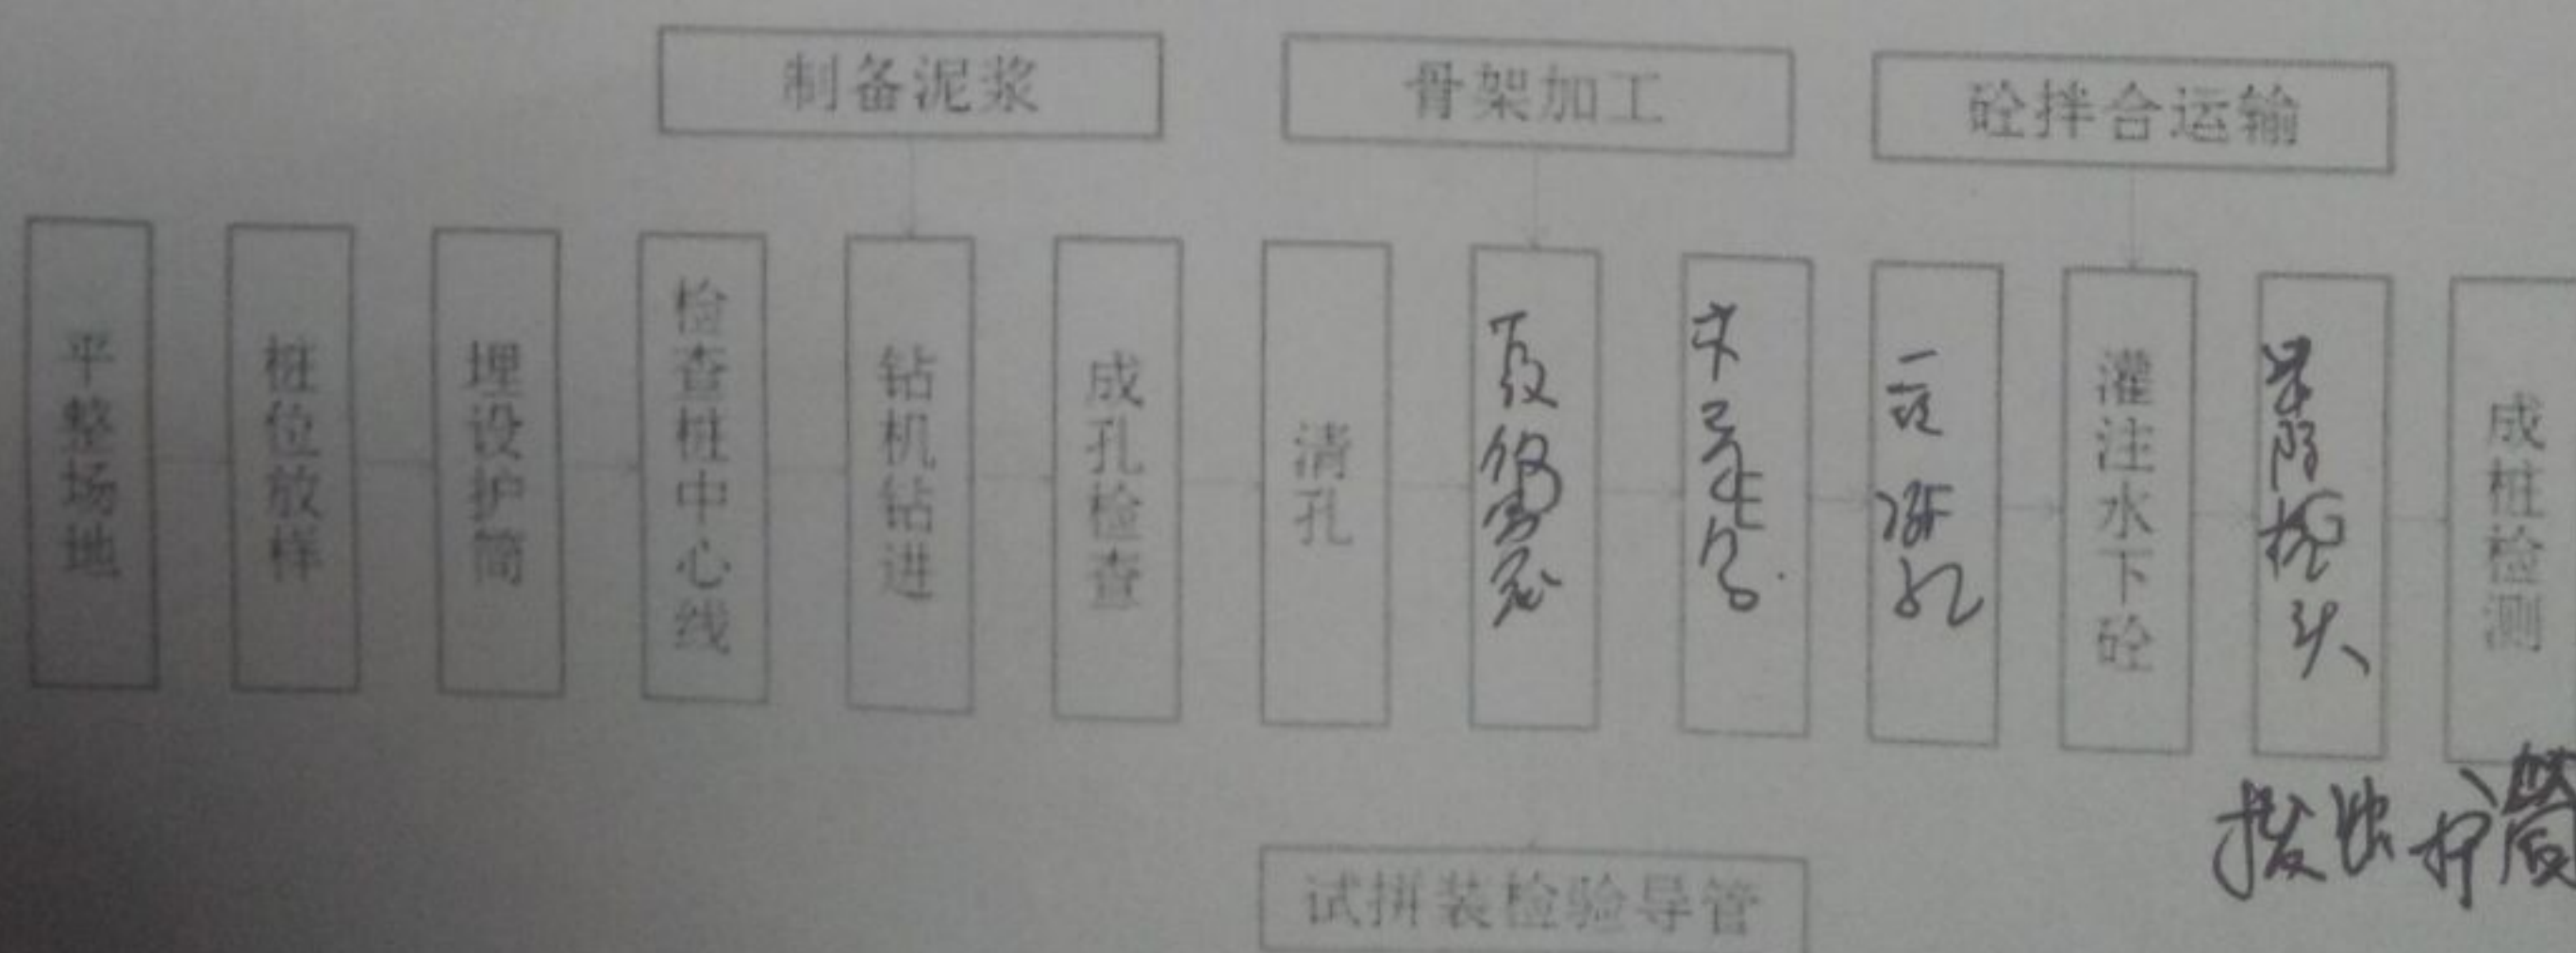 制备泥浆
骨架加工
砼拌合运输
平整场地
桩位放样
埋设护筒
检查桩中心线
钻机钻进
成孔检查
清孔
二次清孔
灌注水下砼
桩头
成桩检测
拔出护筒
试拼装检验导管